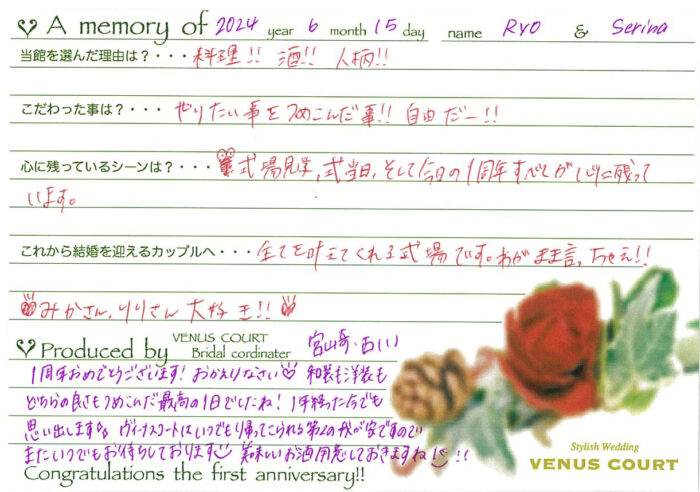 A memory of 2024 year 6 month 15 day name Ryo & Serina
当館を選んだ理由は？・・・料理!! 酒!! 人柄!!
こだわった事は？・・・やりたい事をつめこんだ事!! 自由だー!!
心に残っているシーンは？・・・式場見学, 式当日, そして今日の1周年すべてが心に残って
います。
これから結婚を迎えるカップルへ・・・全てを叶えてくれる式場です。わがまま言っちゃえ!!
みかさん, りりさん 大好き!!
Produced by VENUS COURT Bridal cordinater 宮崎・古川
1周年おめでとうございます! おかえりなさい♡ 和装も洋装も
どちらの良さもつめこんだ最高の1日でしたね! 1年経った今でも
思い出します。ヴィーナスコートはいつでも帰ってこられる第2の我が家ですので
またいつでもお待ちしております 美味しいお酒用意しておきますね!!
Congratulations the first anniversary!!
Stylish Wedding
VENUS COURT